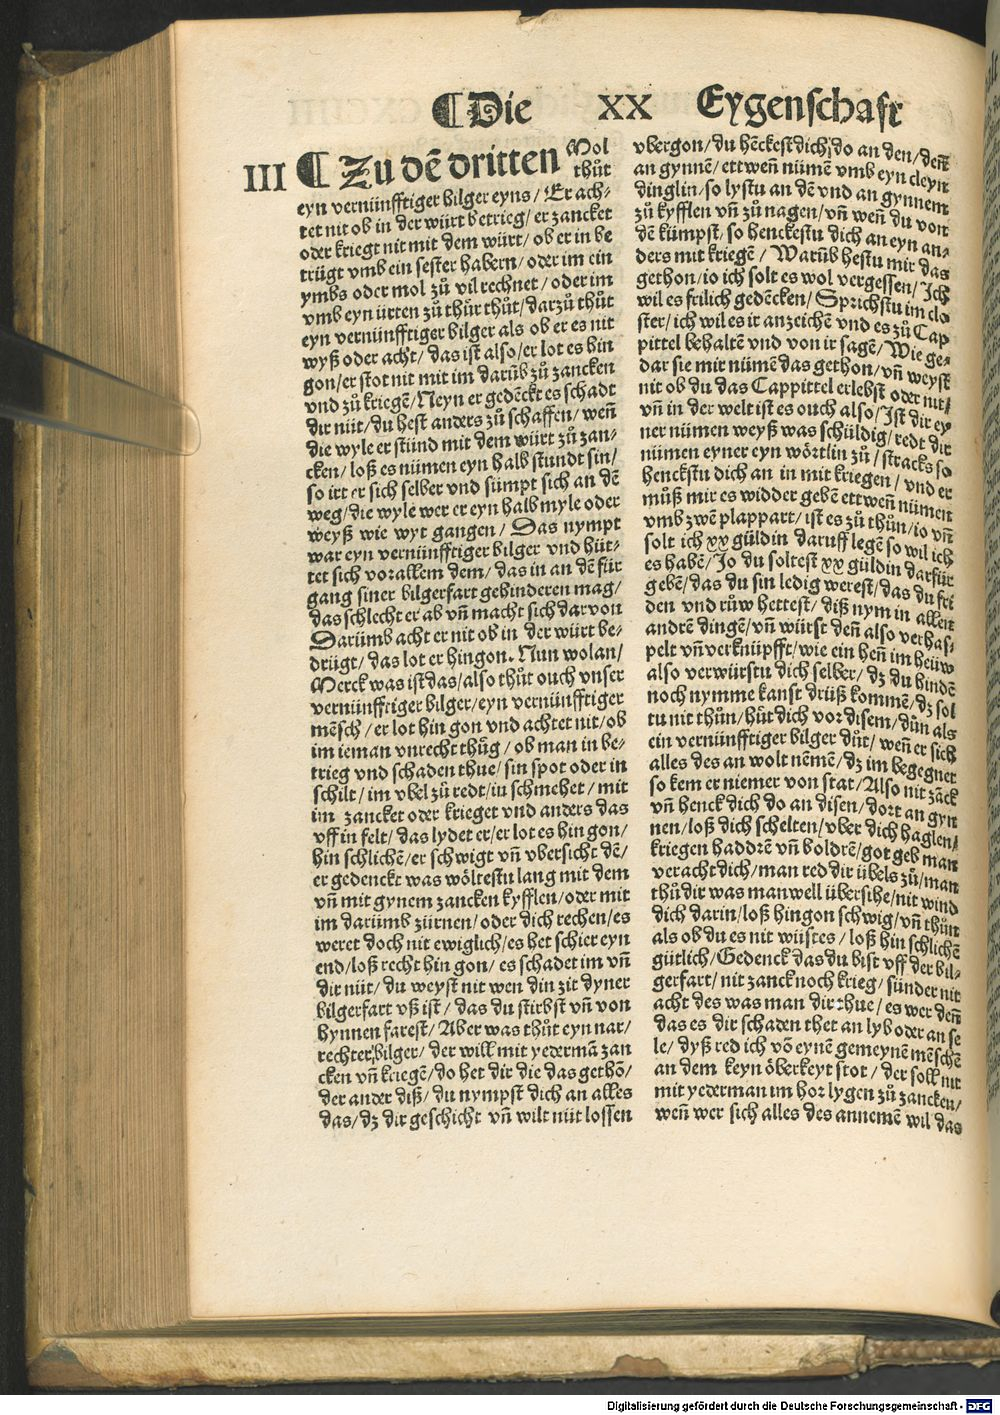 ¶Die XX Eygenschaft
III ¶ Zu dē dritten Mol
thůt
eyn vernünfftiger bilger eyns/ Er ach-
tet nit ob in der würt betrieg/ er zancket
oder kriegt nit mit dem würt/ ob er in be
trügt vmb ein sester habern/ oder im ein
ymbs oder mol zů vil rechnet/ oder im
vmb eyn ürten zů thür thůt/ darzů thůt
eyn vernünfftiger bilger als ob er es nit
wyß oder acht/ das ist also/ er lot es hin
gon/ er stot nit mit im darūb zů zancken
vnd zů kriegē/ Neyn er gedēckt es schadt
dir nüt/ du hest anders zů schaffen/ weñ
die wyle er stünd mit dem würt zů zan-
cken/ loß es nümen eyn halb stundt sin/
so irt er sich selber vnd sümpt sich an dē
weg/ die wyle wer er eyn halb myle oder
weyß wie wyt gangen/ Das nympt
war eyn vernünfftiger bilger vnd hüt-
tet sich vor allem dem/ das in an dē für
gang siner bilgerfart gehinderen mag/
das schlecht er ab vñ macht sich darvon
Darümb acht er nit ob in der würt be-
drügt/ das lot er hingon. Nun wolan/
Merck was ist das/ also thůt ouch vnser
vernünfftiger bilger/ eyn vernünfftiger
mēsch/ er lot hin gon vnd achtet nit/ ob
im ieman vnrecht thüg/ ob man in be-
trieg vnd schaden thue/ sin spot oder in
schilt/ im vbel zů redt/ in schmehet/ mit
im zancket oder krieget vnd anders das
vff in felt/ das lydet er/ er lot es hin gon/
hin schlichē/ er schwigt vñ vbersicht dē/
er gedenckt was wöltestu lang mit dem
vñ mit gynem zancken kyfflen/ oder mit
im darümb zürnen/ oder dich rechen/ es
weret doch nit ewiglich/ es het schier eyn
end/ loß recht hin gon/ es schadet im vñ
dir nüt/ du weyst nit wen din zit dyner
bilgerfart vß ist/ das du stirbst vñ von
hynnen farest/ Aber was thůt eyn nar/
rechter bilger/ der will mit yedermā zan
cken vñ kriegē/ do het dir die das gethō/
der ander diß/ du nympst dich an alles
das/ dz dir geschicht vñ wilt nüt lossen
vbergon/ du hēckest dich do an den/ deñt
an gynnē/ ettweñ nümen vmb eyn cleyn
dinglin/ so lystu an dē vnd an gynnem
zů kyfflen vñ zů nagen/ vñ weñ du von
dē kümpst/ so henckestu dich an eyn an-
ders mit kriegē/ Warūb hestu mir das
gethon/ io ich solt es wol vergessen/ Ich
wil es frilich gedēcken/ Sprichstu im clo
ster/ ich wil es ir anzeichē vnd es zů Cap
pittel behaltē vnd von ir sagē/ Wie ge-
dar sie mir nümē das gethon/ vñ weyst
nit ob du das Cappittel erlebst oder nit/
vñ in der welt ist es ouch also/ Ist dir ey
ner nümen weyß was schüldig/ redt dir
nümen eyner eyn wörtlin zů/ stracks so
henckstu dich an in mit kriegen/ vnd er
můß mir es widder gebē ettweñ nümen
vmb zwē plappart/ ist es zů thůn/ io vñ
solt ich xx güldin daruff legē so wil ich
es habē/ Jo du soltest xx güldin darfür
gebē/ das du sin ledig werest/ das du fri
den vnd růw hettest/ diß nym in allen
andrē dingē/ vñ würst deñ also verhas-
pelt vñ verknüpfft/ wie ein heñ im heüw
also verwürstu dich selber/ dz du hindē
noch nymme kanst drüß kommē/ dz sol
tu nit thůn/ hüt dich vor disem/ důn als
ein vernünfftiger bilger důt/ weñ er sich
alles des an wolt nēmē/ dz im begegnet
so kem er niemer von stat/ Also nit zāck
vñ henck dich do an disen/ dort an gyn
nen/ loß dich schelten/ vber dich haglen/
kriegen haddrē vñ boldrē/ got geb man
veracht dich/ man red dir übels zů/ man
thů dir was man well übersihe/ nit wind
dich darin/ loß hingon schwig/ vñ thůnt
als ob du es nit wüstes/ loß hin schlichē
gütlich/ Gedenck das du bist vff der bil-
gerfart/ nit zanck noch krieg/ sünder nit
acht des was man dir thue/ es wer deñ
das es dir schaden thet an lyb oder an se
le/ dyß red ich vō eynē gemeynē mēschē
an dem keyn öberkeyt stot/ der soll nit
mit yederman im hor lygen zů zancken/
weñ wer sich alles des annemē wil das
Digitalisierung gefördert durch die Deutsche Forschungsgemeinschaft - DFG